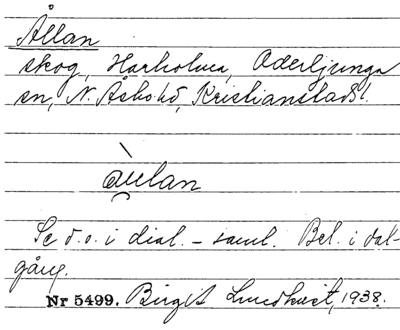 Ållan
skog, Harholma, Oderljunga
sn, N. Åsbo hd, Kristianstads l.
åulan
Se d.o. i dial.-saml. Bel. i dal-
gång.
Nr 5499. Birgit Lundkvist, 1938.